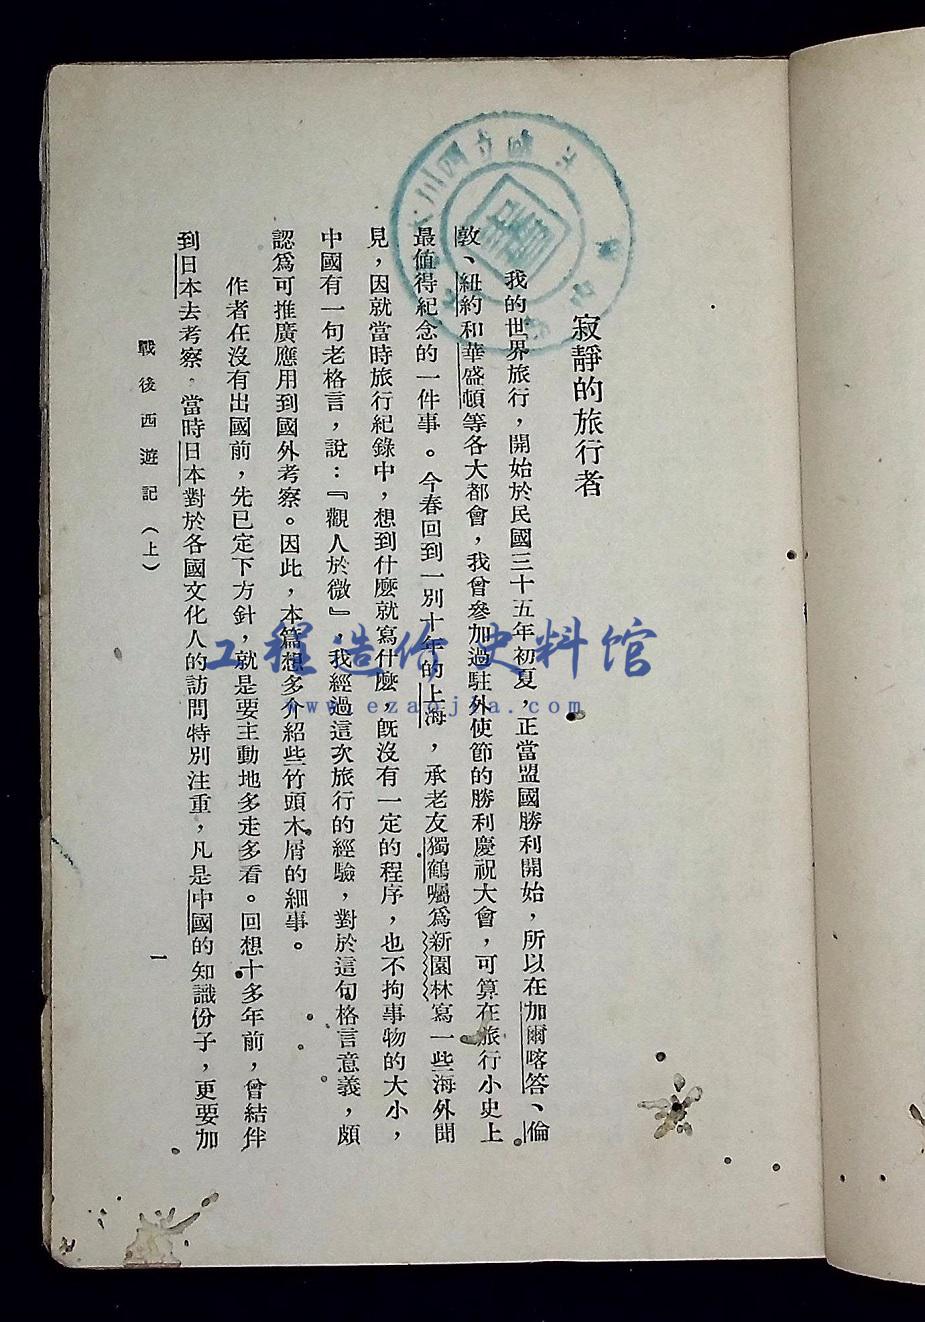 寂靜的旅行者
我的世界旅行，開始於民國三十五年初夏，正當盟國勝利開始，所以在加爾喀答、倫
敦、紐約和華盛頓等各大都會，我曾參加過駐外使節的勝利慶祝大會，可算在旅行小史上
最值得紀念的一件事。今春回到一別十年的上海，承老友獨鶴囑爲新園林寫一些海外聞
見，因就當時旅行紀錄中，想到什麼就寫什麼，旣沒有一定的程序，也不拘事物的大小，
中國有一句老格言，說：『觀人於微』，我經過這次旅行的經驗，對於這句格言意義，頗
認爲可推廣應用到國外考察。因此，本篇想多介紹些竹頭木屑的細事。
作者在沒有出國前，先已定下方針，就是要主動地多走多看。回想十多年前，曾結伴
到日本去考察，當時日本對於各國文化人的訪問特別注重，凡是中國的知識份子，更要加
戰後西遊記（上）
一
工程造价史料馆
www.ezaojia.com
川四立國